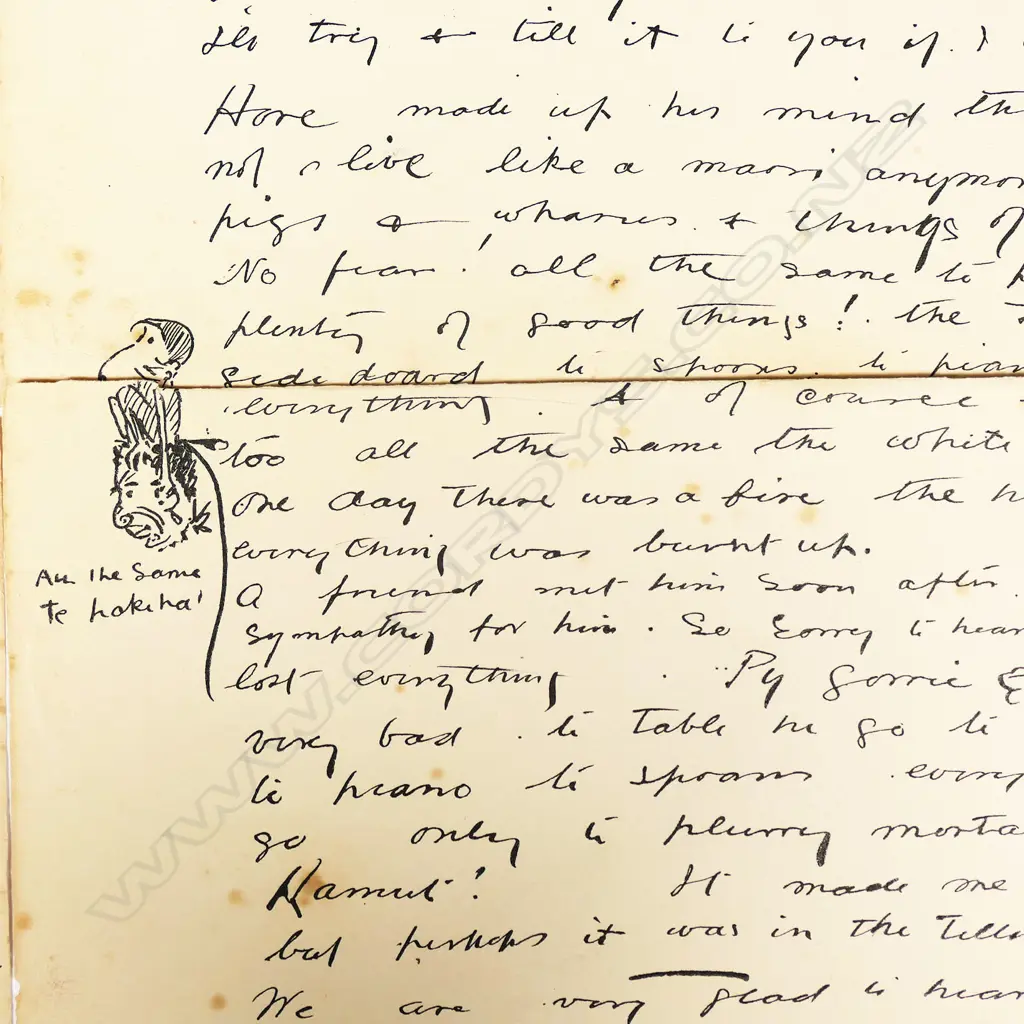 Ill try & tell it to you if I
Hore made up his mind th
not live like a maori anymor
pigs & wharies & things of
No fear! all the same to
plenty of good things! the
side doard to spoons to pian
everything. & of course
too all the same the white
one day there was a fire the h
everything was burnt up.
A friend met him soon after
sympathy for him. So sorry to hear
lost everything. "Py gorrie
very bad. te table he go te
te piano te spoons every
go only te plurry morta
Kamut! It made me
but perhaps it was in the Tell
We are very glad to hear
All the same
te hokiha!
WWW.CORDYEZ.CO.NZ